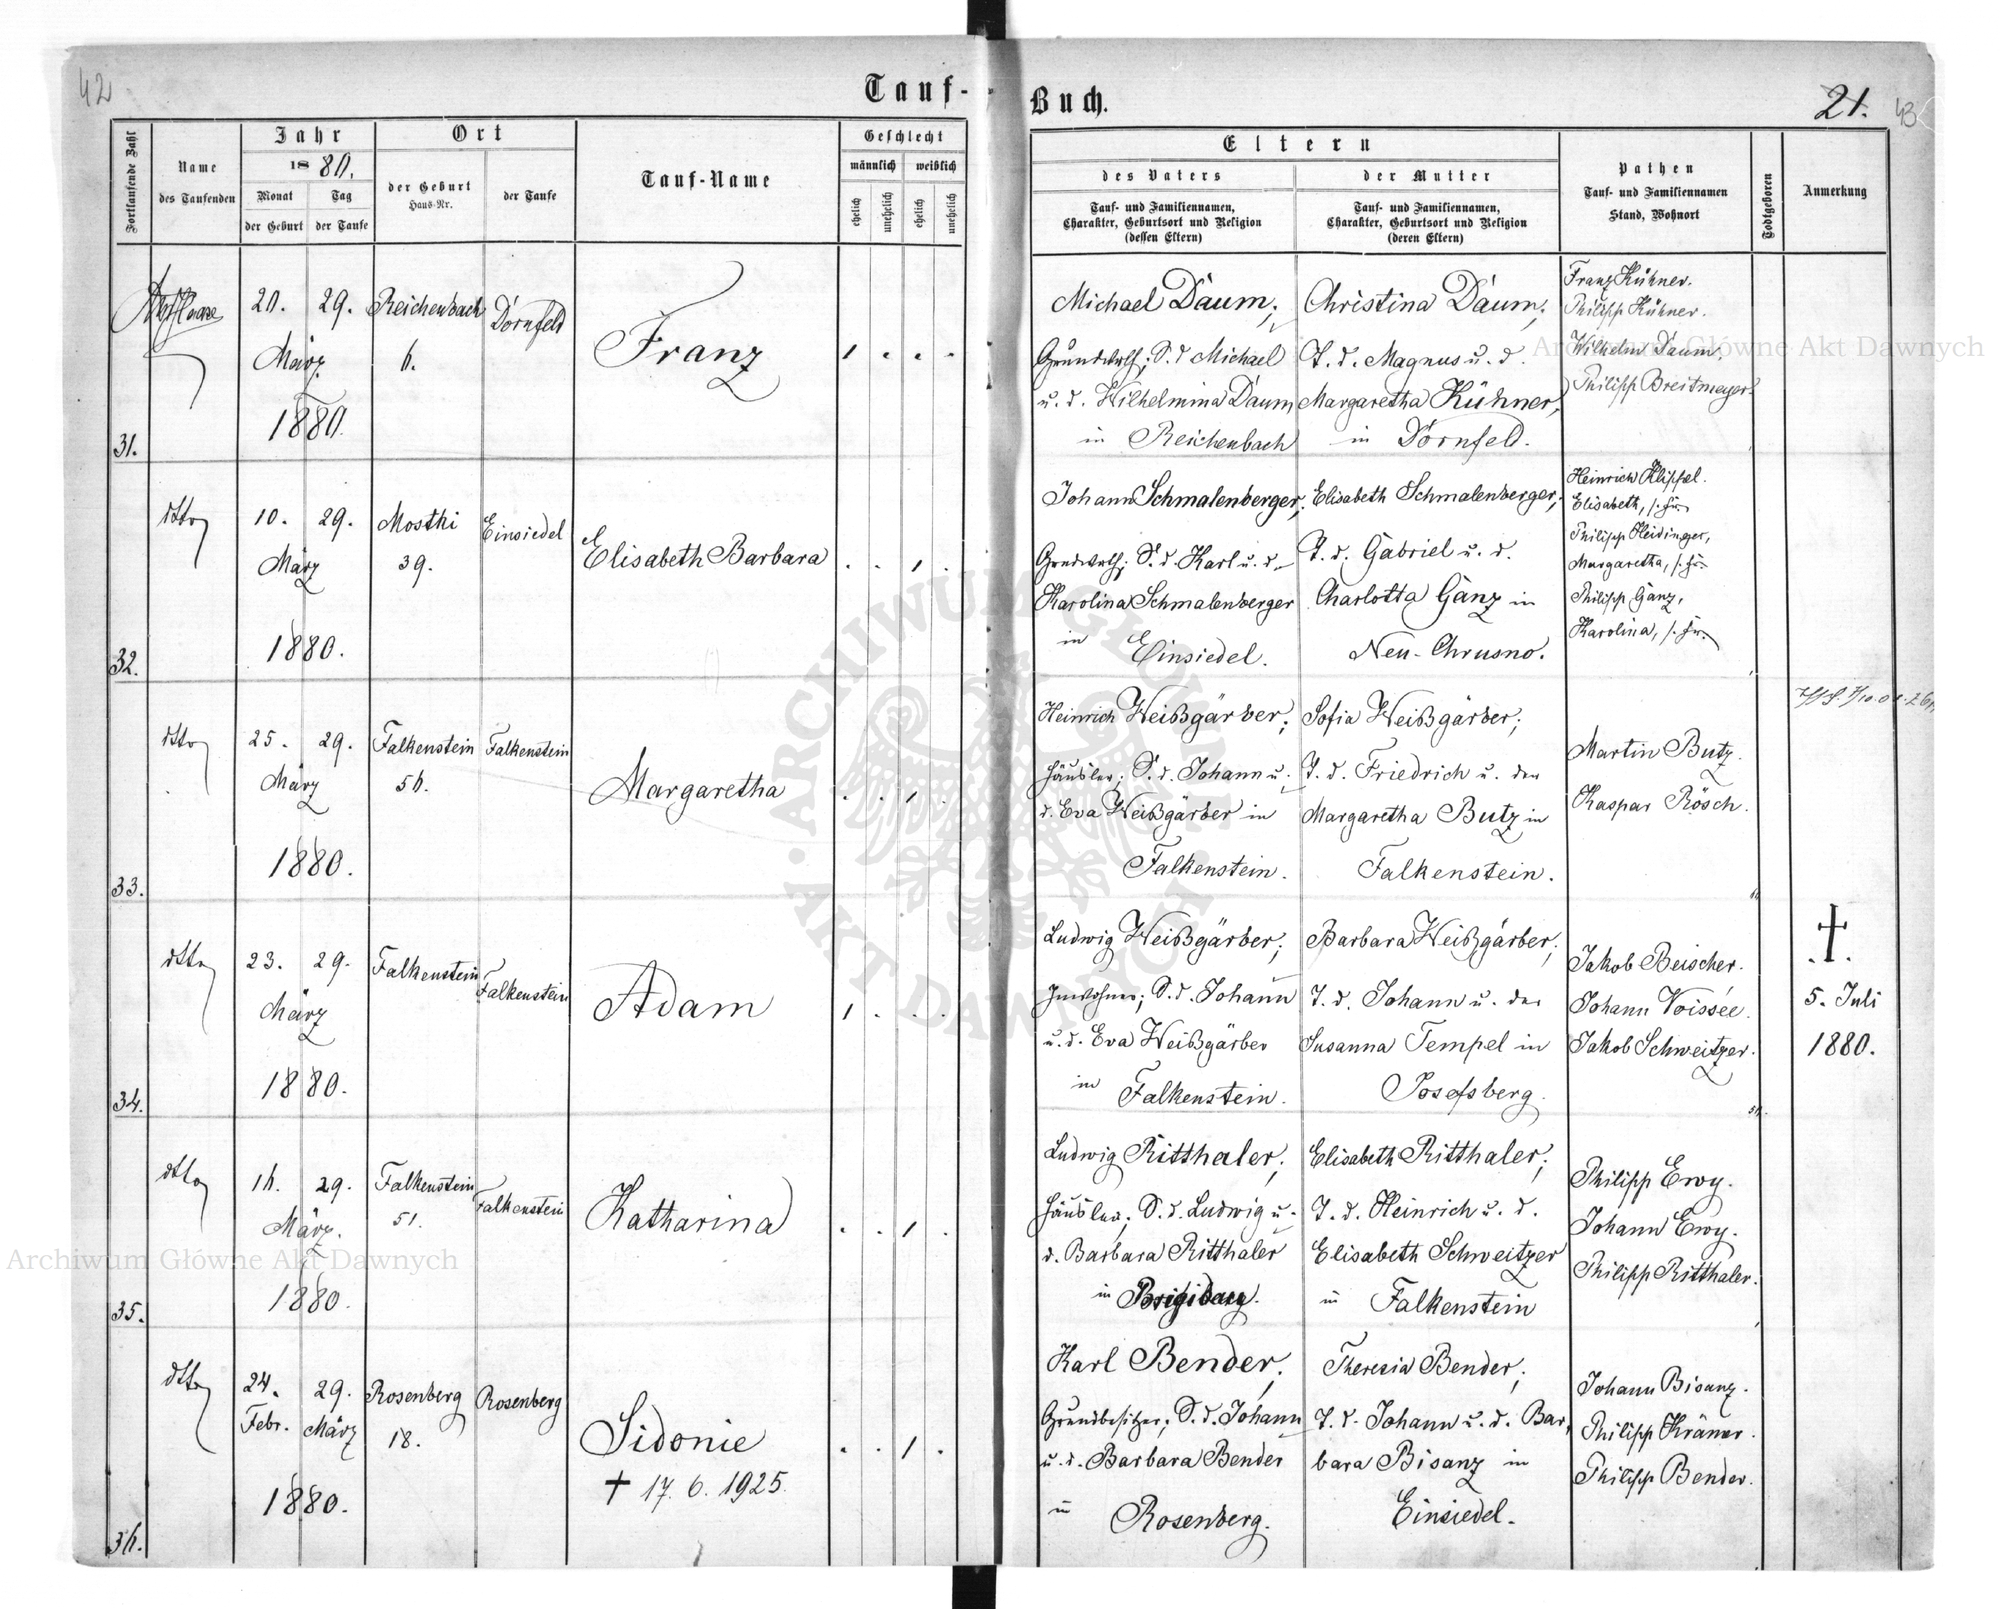 42
Tauf-
Buch.
21.
43
Fortlaufende Zahl
Name
des Taufenden
Jahr
1880.
Monat
der Geburt
Tag
der Taufe
Ort
der Geburt
Haus-Nr.
der Taufe
Tauf-Name
Geschlecht
männlich
weiblich
ehelich
unehelich
ehelich
unehelich
Eltern
des Vaters
Tauf- und Familiennamen,
Charakter, Geburtsort und Religion
(dessen Eltern)
der Mutter
Tauf- und Familiennamen,
Charakter, Geburtsort und Religion
(deren Eltern)
Pathen
Tauf- und Familiennamen
Stand, Wohnort
Todtgeboren
Anmerkung
31.
20. 29.
März
1880.
Reichenbach
6.
Dornfeld
Franz
1 . . .
Michael Daum;
Grundwirth; S. d Michael
u. d. Wilhelmina Daum
in Reichenbach
Christina Daum;
T. d. Magnus u. d.
Margaretha Kühner,
in Dornfeld.
Franz Kühner.
Philipp Kühner.
Wilhelm Daum.
Philipp Breitmeyer.
32.
dtto
10. 29.
März
1880.
Mostki
39.
Einsiedel
Elisabeth Barbara
. . 1 .
Johann Schmalenberger;
Grndwrth; S. d. Karl u. d.
Karolina Schmalenberger
in Einsiedel.
Elisabeth Schmalenberger;
T. d. Gabriel u. d.
Charlotta Ganz in
Neu-Chrusno.
Heinrich Klippel.
Elisabeth, s. Fr.
Philipp Heidinger,
Margaretha, s. Fr.
Philipp Ganz,
Karolina, s. Fr.
33.
dtto
25. 29.
März
1880.
Falkenstein
56.
Falkenstein
Margaretha
. . 1 .
Heinrich Weißgärber;
Häusler; S. d. Johann u.
d. Eva Weißgärber in
Falkenstein.
Sofia Weißgärber;
T. d. Friedrich u. der
Margaretha Butz in
Falkenstein.
Martin Butz.
Kaspar Rösch.
34.
dtto
23. 29.
März
1880.
Falkenstein
Falkenstein
Adam
1 . . .
Ludwig Weißgärber;
Inwohner; S. d. Johann
u. d. Eva Weißgärber
in Falkenstein.
Barbara Weißgärber;
T. d. Johann u. der
Susanna Tempel in
Josefsberg.
Jakob Beischer.
Johann Voissée.
Jakob Schweitzer.
†
5. Juli
1880.
35.
dtto
16. 29.
März.
1880.
Falkenstein
51.
Falkenstein
Katharina
. . 1 .
Ludwig Ritthaler;
Häusler; S. d. Ludwig u.
d. Barbara Ritthaler
in
Elisabeth Ritthaler;
T. d. Heinrich u. d.
Elisabeth Schweitzer
in Falkenstein
Philipp Ewy.
Johann Ewy.
Philipp Ritthaler.
36.
dtto
24. 29.
Febr. März
1880.
Rosenberg
18.
Rosenberg
Sidonie
† 17. 6. 1925.
. . 1 .
Karl Bender;
Grundbesitzer; S. d. Johann
u. d. Barbara Bender
in Rosenberg.
Theresia Bender;
T. d. Johann u. d. Bar,
bara Bisanz in
Einsiedel.
Johann Bisanz.
Philipp Krämer.
Philipp Bender.
Archiwum Główne Akt Dawnych
Archiwum Główne Akt Dawnych
ARCHIWUM GŁÓWNE · AKT DAWNYCH ·